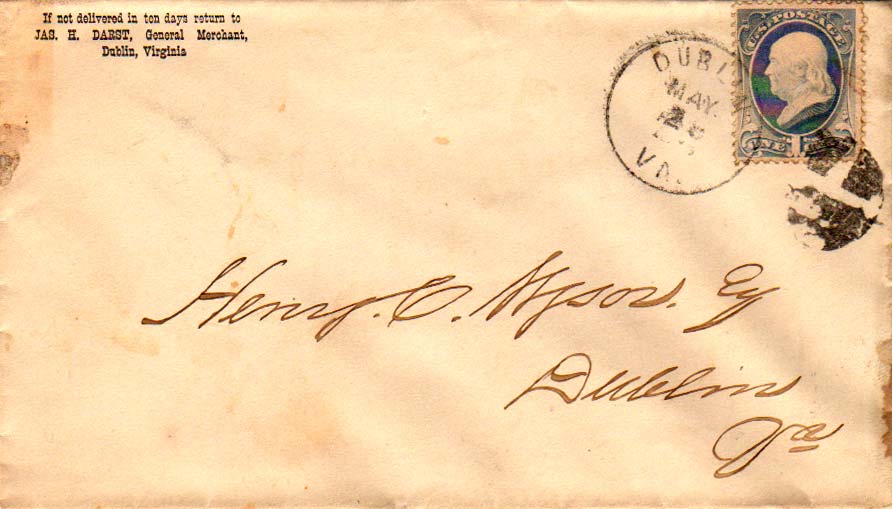 If not delivered in ten days return to
JAS. H. DARST, General Merchant,
Dublin, Virginia
U.S. POSTAGE
ONE CENT
DUBLIN
MAY
VA.
Henry. C. Wysor. Esq
Dublin
Va